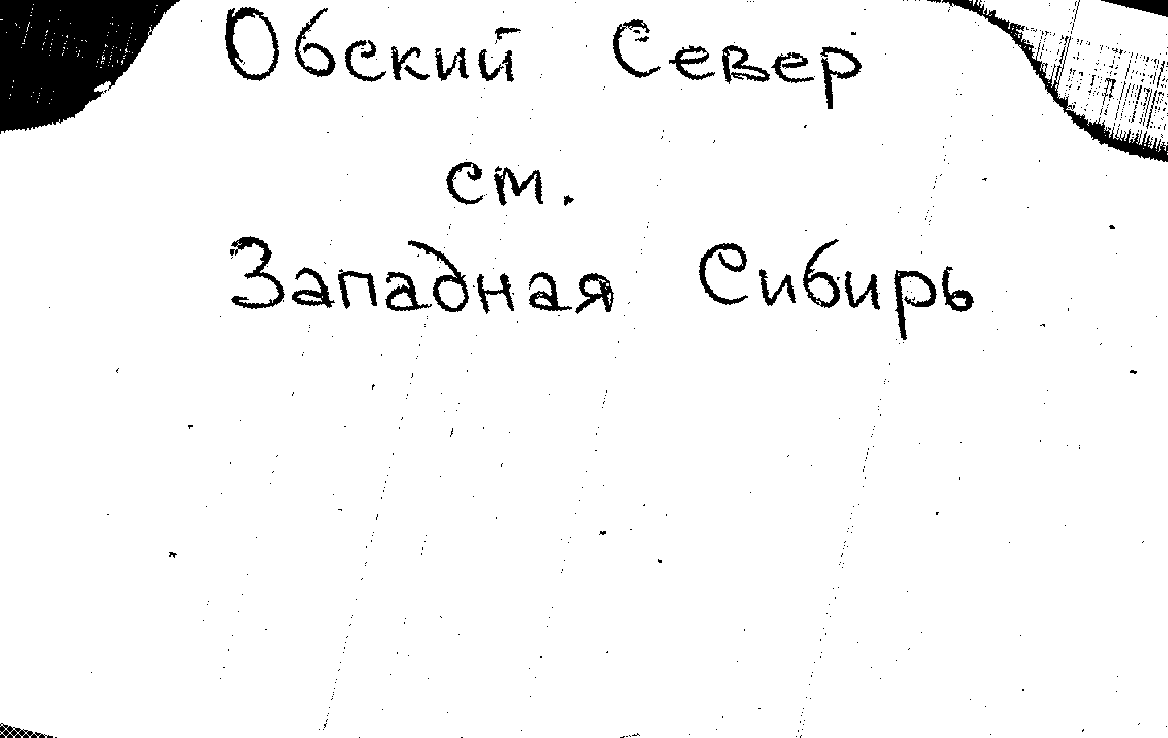 Обский Север
ст.
Западная Сибирь